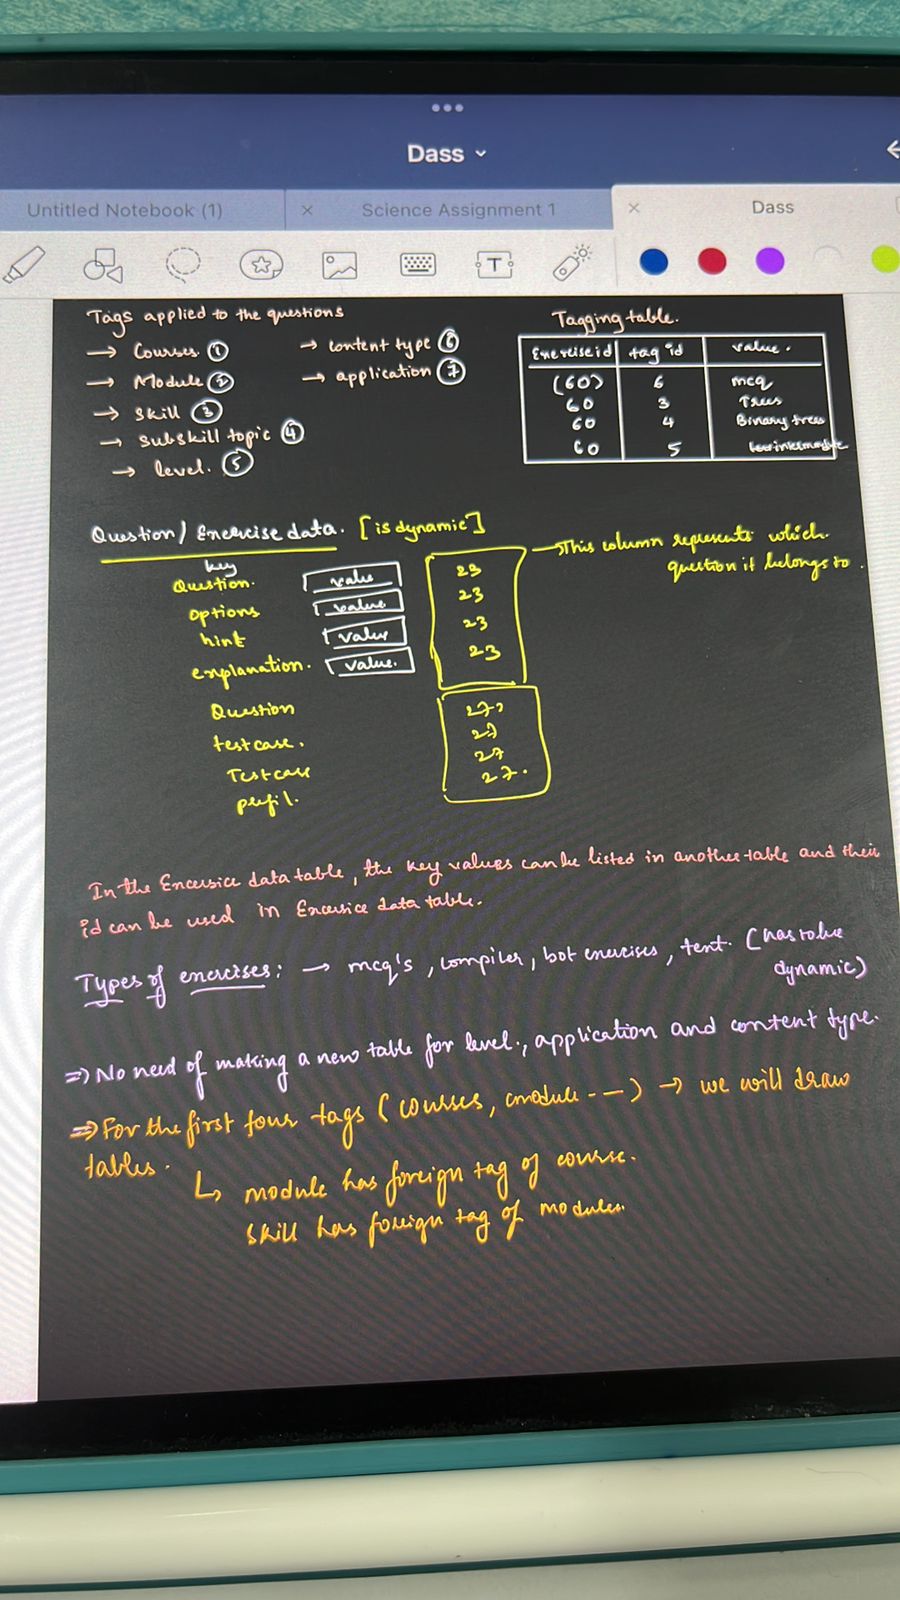 Dass
Untitled Notebook (1)
Science Assignment 1
Dass
Tags applied to the questions
→ Courses ①
→ Module ②
→ skill ③
→ subskill topic ④
→ level. ⑤
→ content type ⑥
→ application ⑦
Tagging table.
Exercise id tag id value.
(60) 6 mcq
60 3 Trees
60 4 Binary trees
60 5
Question/ Exercise data. [is dynamic]
key
Question. value 23
options value 23
hint value 23
explanation. value. 23
→ This column represents which
question it belongs to.
Question 27
testcase. 27
Testcase 27
27.
In the Excersice data table, the key values can be listed in another table and their
id can be used in Excersice data table.
Types of exercises: → mcq's, compiler, bot exercises, text. (has to be
dynamic)
⇒ No need of making a new table for level., application and content type.
⇒ For the first four tags (courses, module - - —) → we will draw
tables.
↳ module has foreign tag of course.
skill has foreign tag of modules.